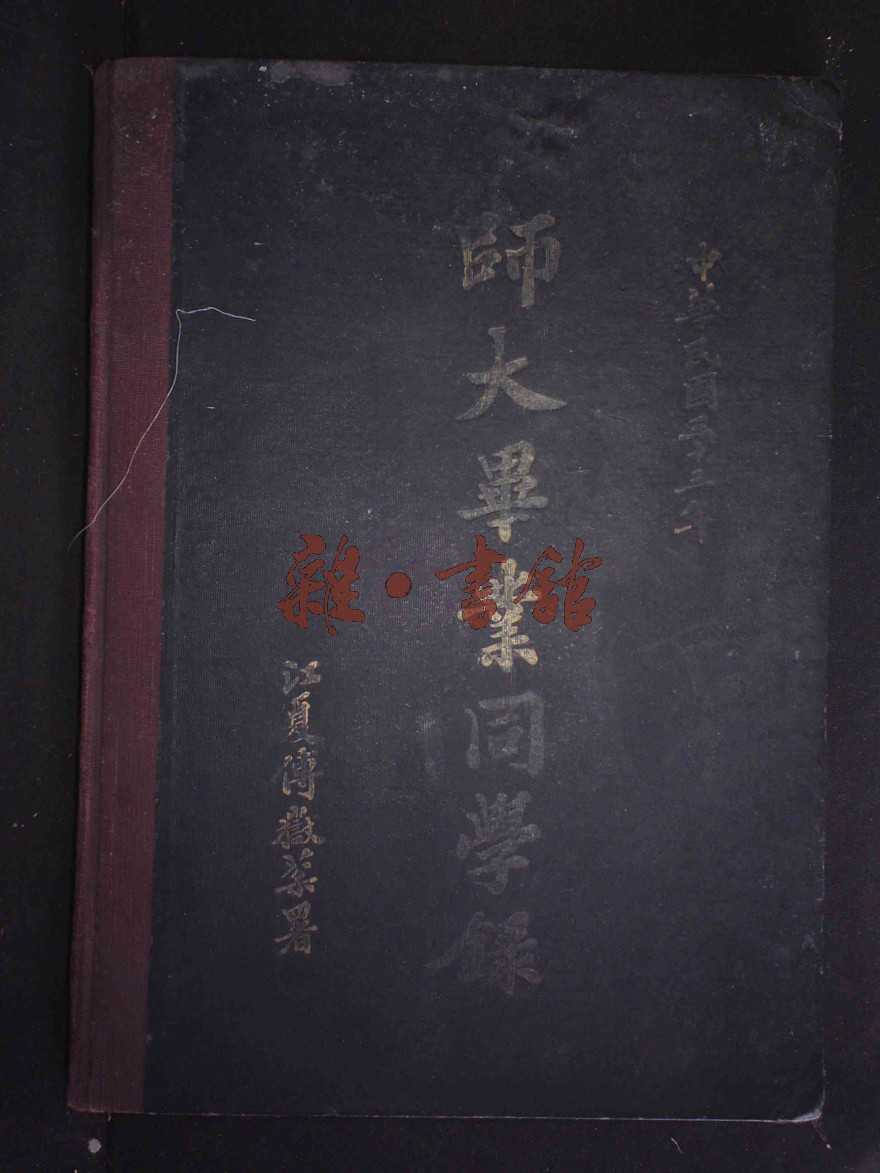 中華民國二十三年
師大畢業同學錄
江夏傅嶽棻署
雜·書館